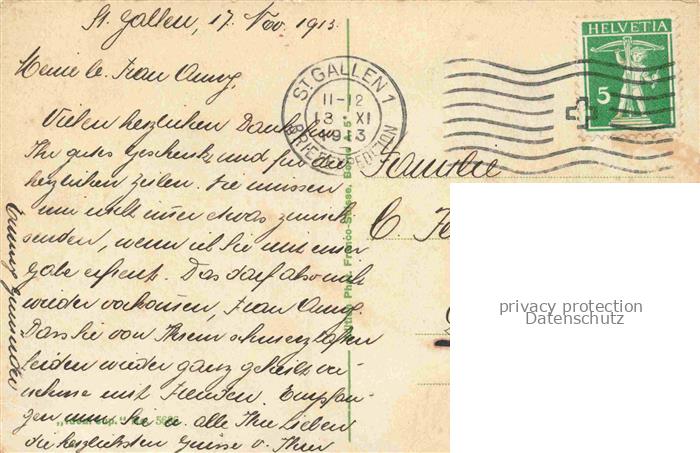 St. Gallen, 17. Nov. 1913.
Meine lb. Frau Anny,
Vielen herzlichen Dank für
Ihr gutes Geschenk und für die
herzlichen Zeilen. Sie müssen
mir nicht immer etwas zurück
senden, wenn ich Sie mit einer
Gabe erfreut. Das darf also nicht
wieder vorkommen, Frau Anny.
Dass Sie von Ihrem schmerzhaften
Leiden wieder ganz geheilt ver-
nehme mit Freuden. Empfan-
gen nun Sie u. alle Ihre Lieben
die herzlichsten Grüsse v. Ihrer
Familie
C.
HELVETIA
5
ST. GALLEN 1
11-12
13 XI
1913
BRIEFEXPEDITION
Phot. Franco-Suisse, Berne
5686
privacy protection
Datenschutz